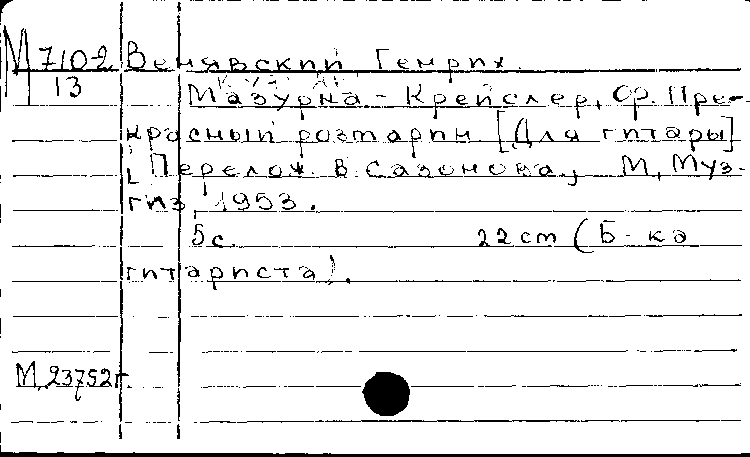 М 710-2 Венявский Генрих.
13
Мазурка. - Крейслер, Фр. Пре-
красный розмарин [Для гитары]
Перелож. В. Сазонова., М, Муз-
гиз, 1953.
5 с. 22 cm (Б-ка
гитариста).
М 23752г.